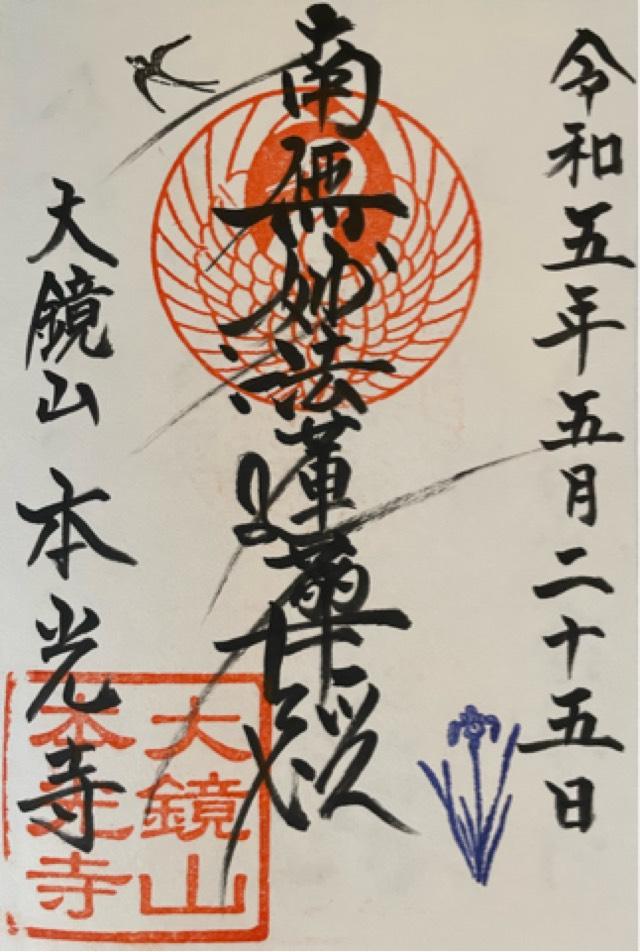 令和五年五月二十五日
南無妙法蓮華経
大鏡山 本光寺
大鏡山
本光寺